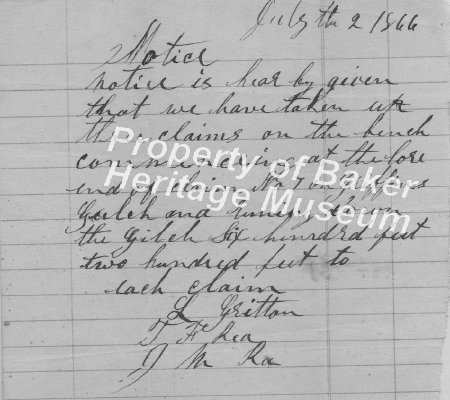 July th 2 1866
Notice
notice is hear by given
that we have taken up
thre claims on the bench
commencing at the lore
end of claim No 7 on
Gulch and runing down
the Gilch six hundrd feet
two hundred feet to
each claim
L Gritton
T F Rea
J M Ra
Property of Baker
Heritage Museum